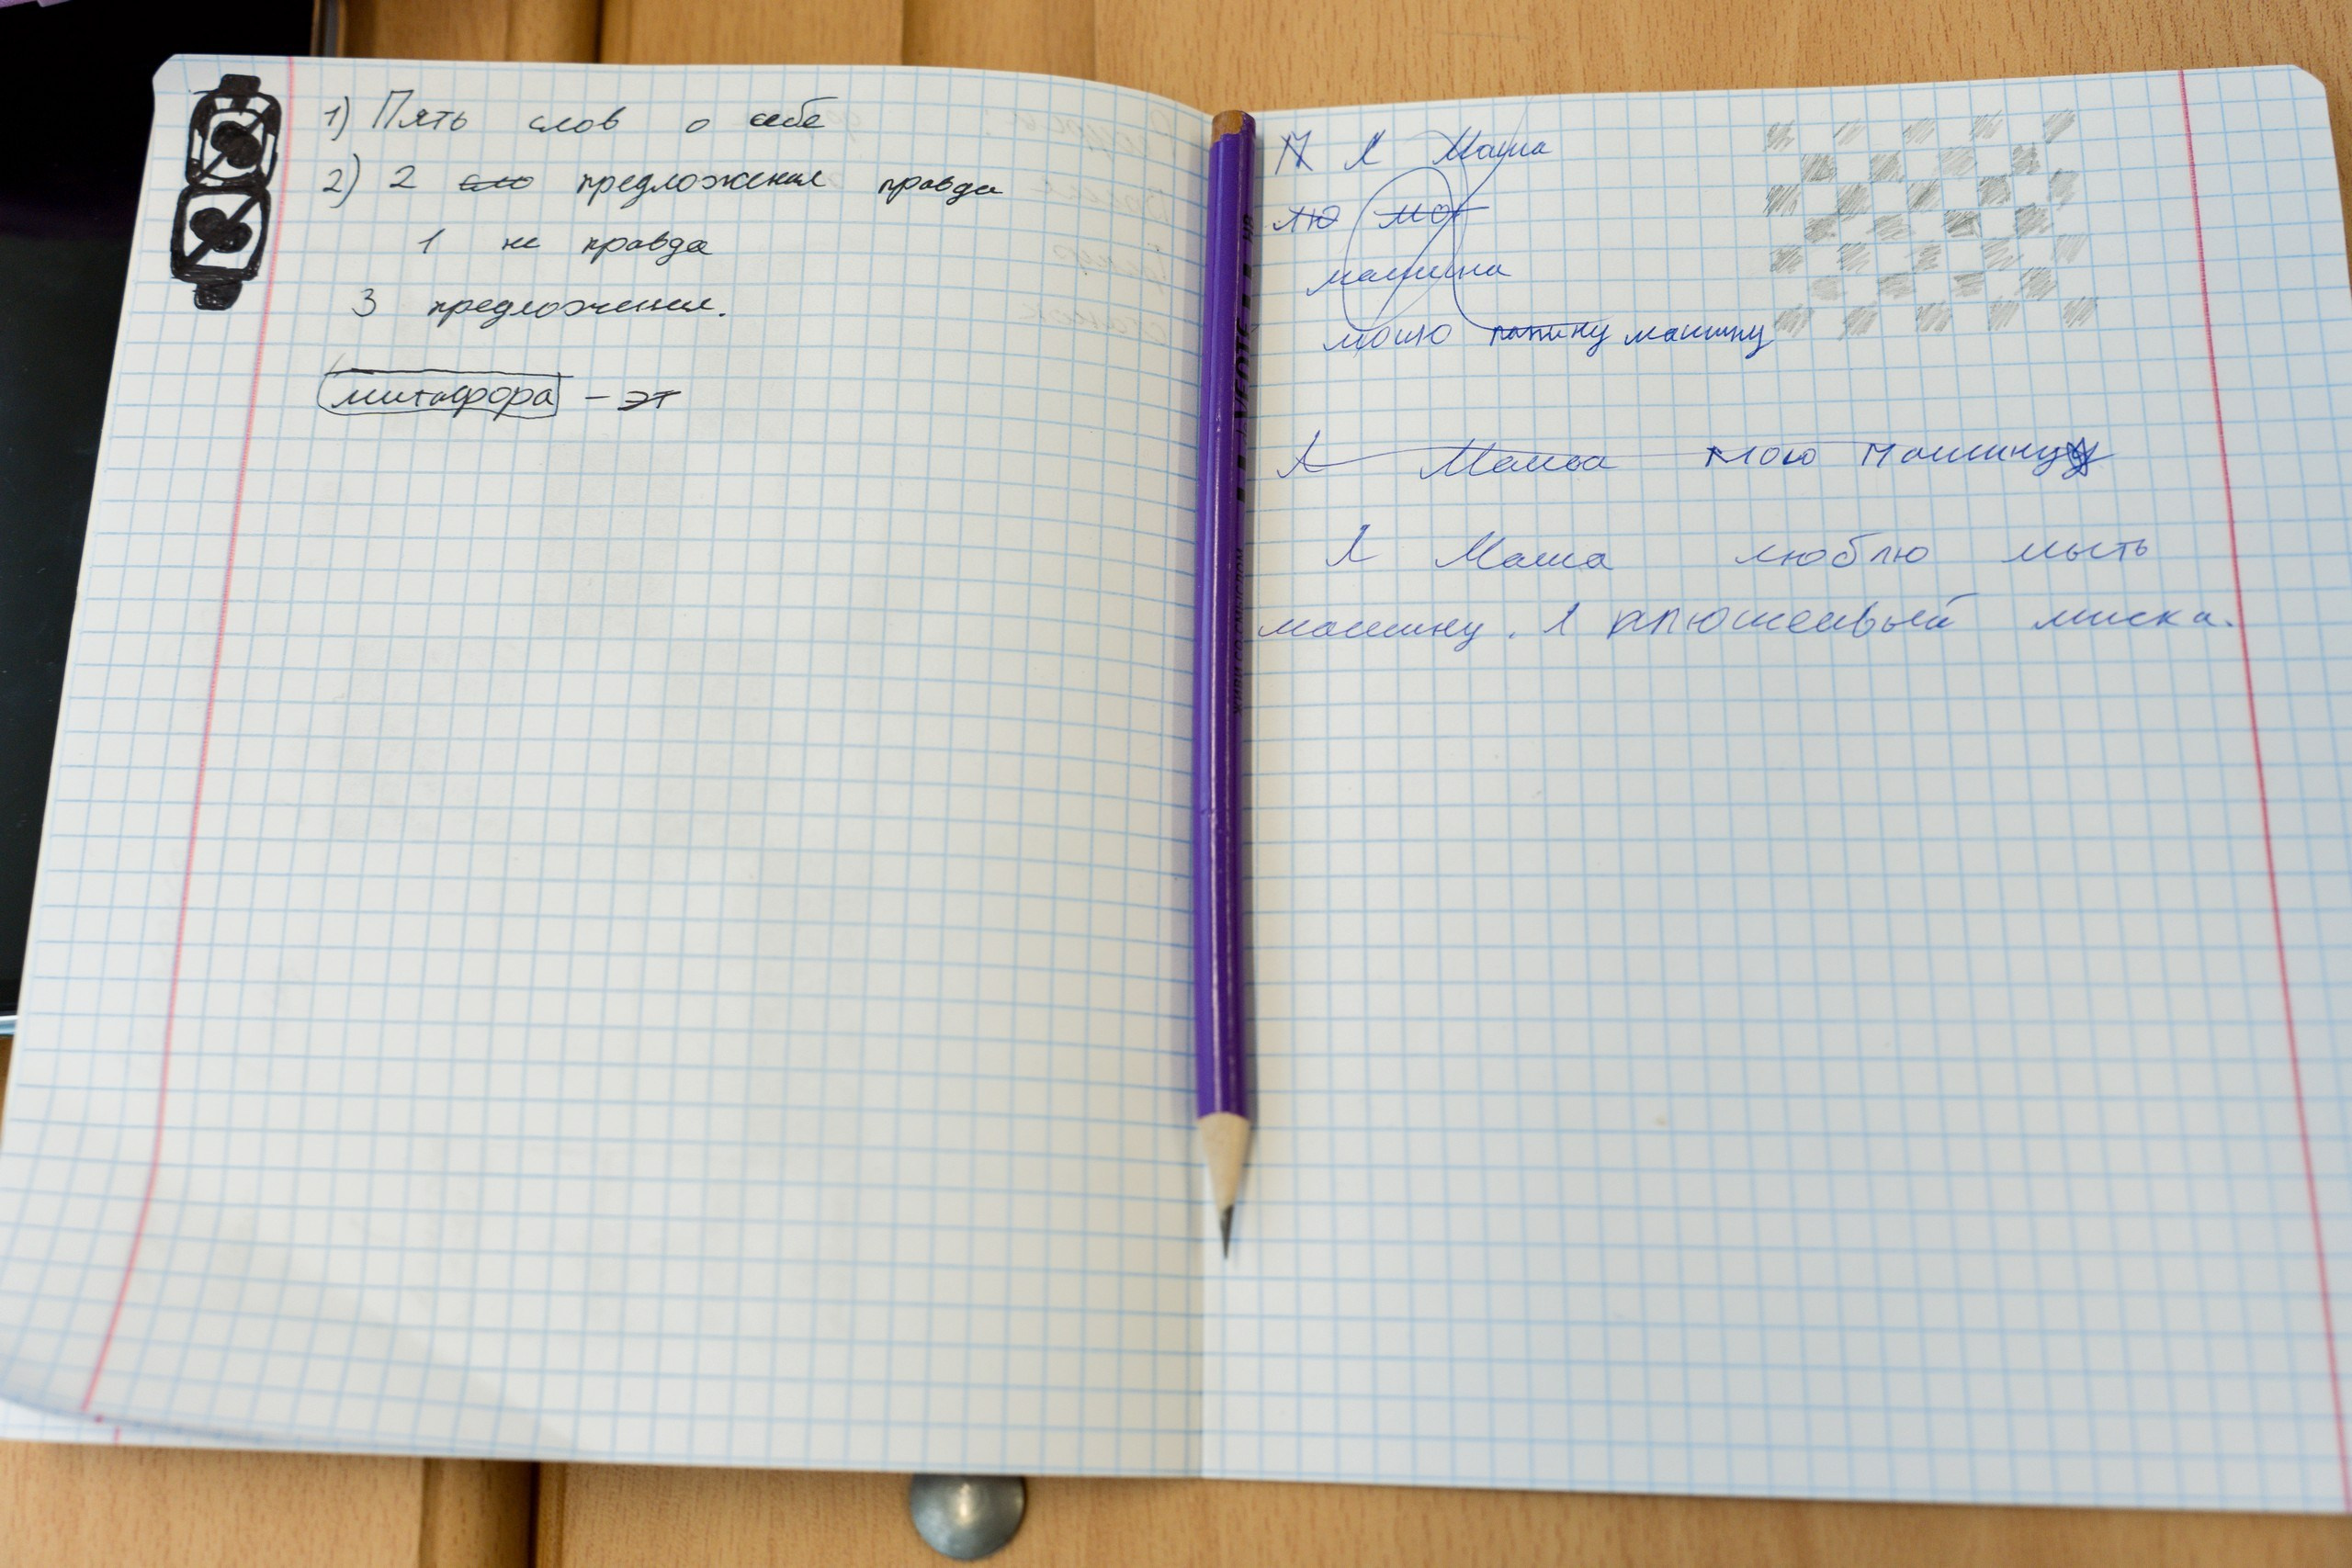 1) Пять слов о себе
2) 2 сло предложения правда
1 не правда
3 предложения.
митафора – эт
Я Маша
лю мо
машина
мою папину машину
Я Маша мою машину
Я Маша люблю мыть
машину. Я плюшевый миска.